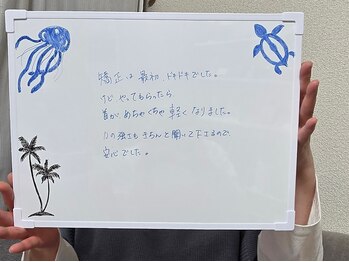 矯正は最初、ドキドキでした。
けど、やってもらったら
首が、めちゃくちゃ軽くなりました。
力の強さも きちんと聞いて下さるので、
安心でした。